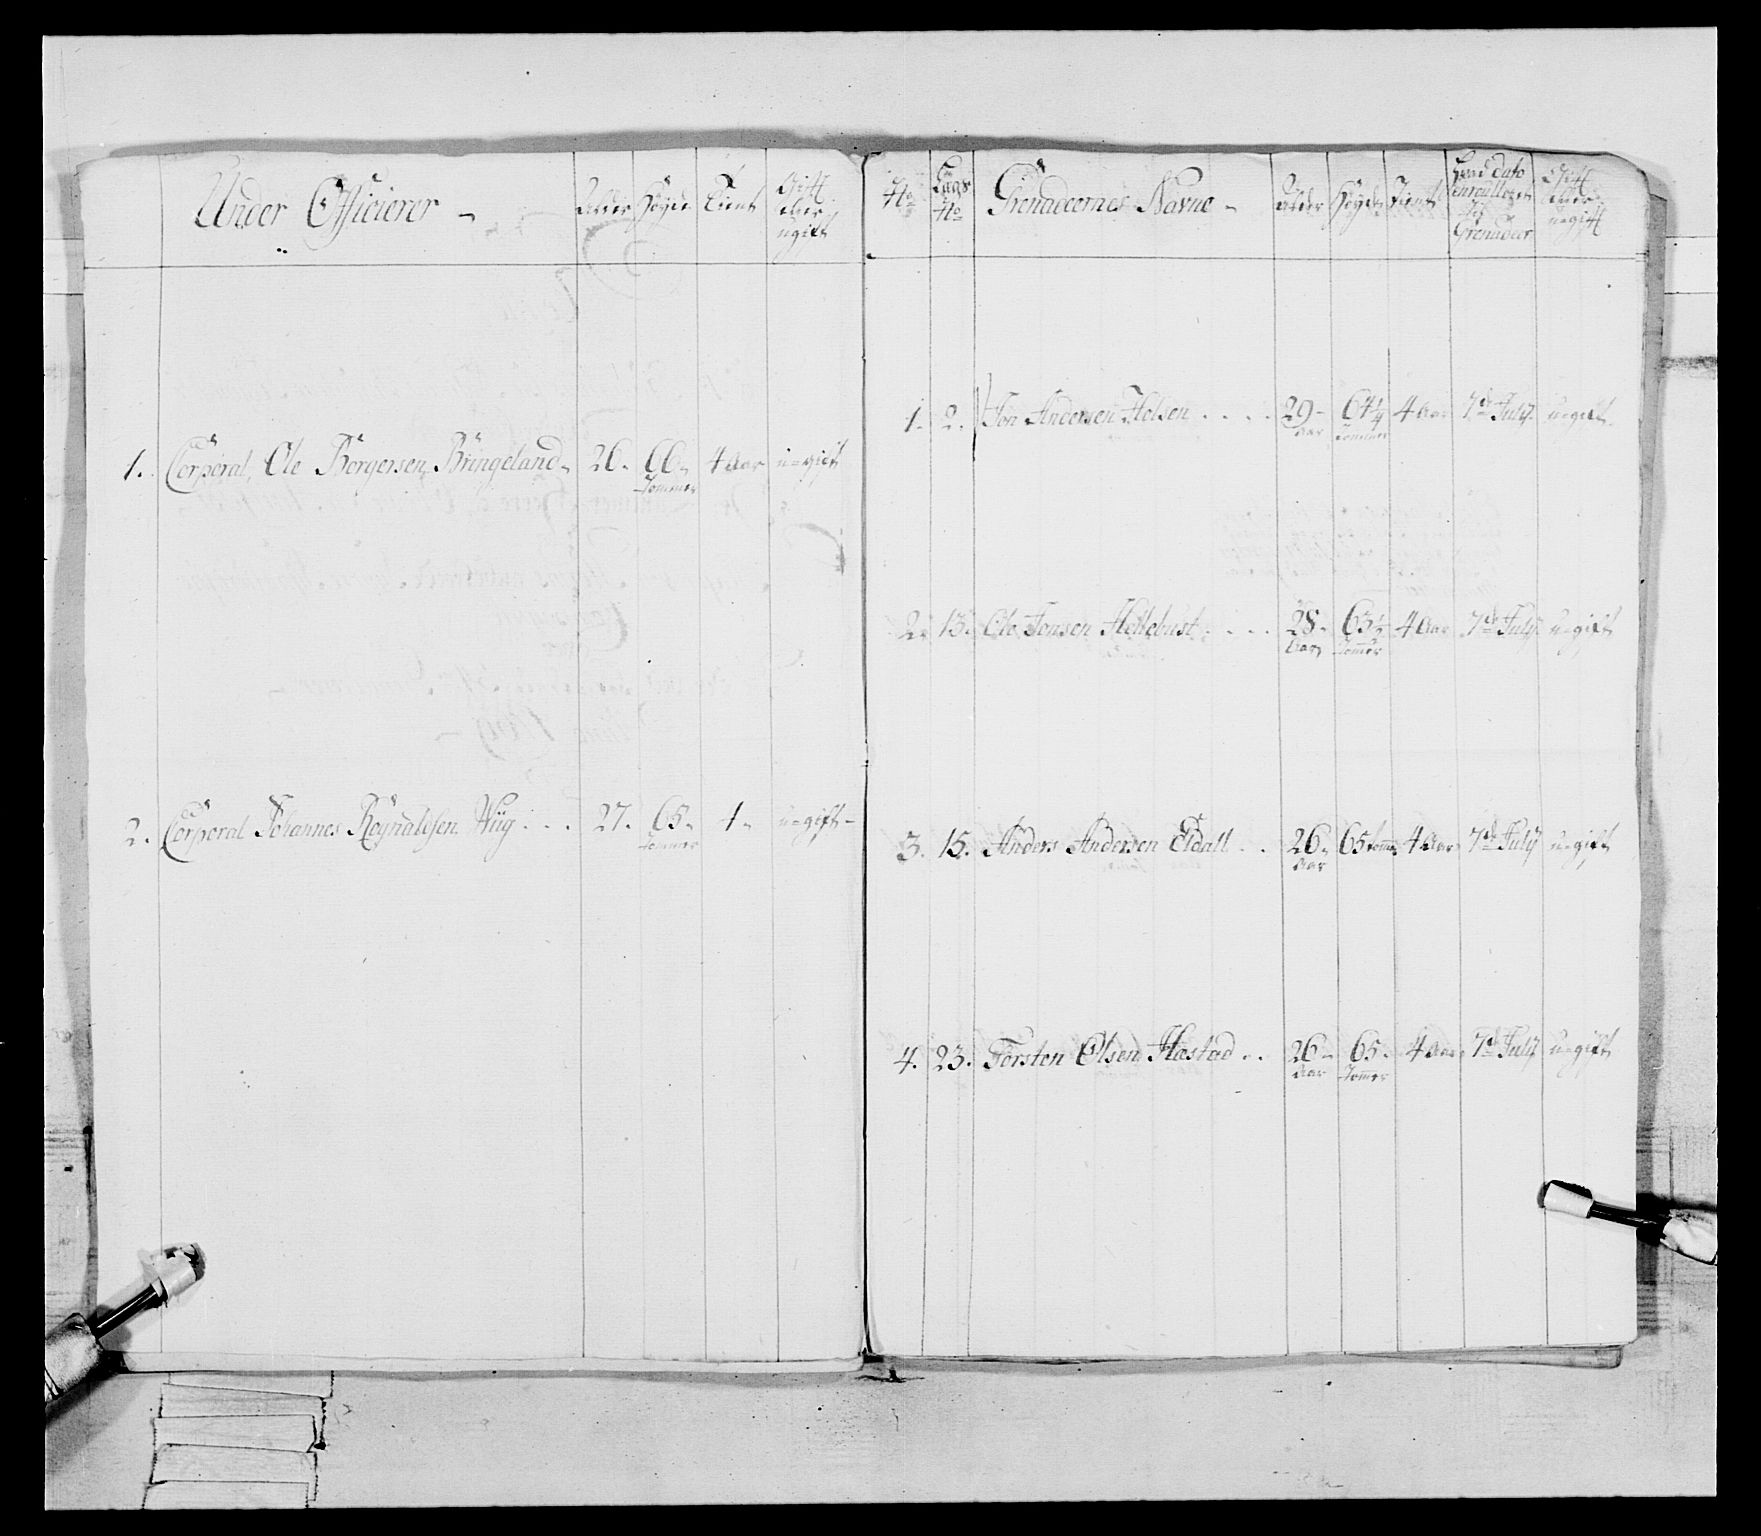 Under Officierer - Alder Høyde Tient Gift eller ugift
1. Corporal, Ole Børgersen Bringeland 26. 66 Tommer 4 Aar u-gift
2. Corporal Johannes Rognaldsen Wiig . . . 27. 65 Tommer 4 u-gift
No Lægs No Grenadeernes Navne - Alder Høyde Tient Hvad dato enroulleret til Grenadeer Gift eller u-gift
1. 2. Jon Andersen Helsen . . . . 29 Aar 64 1/4 Tommer 4 Aar 7de July u-gift
2. 13. Ole Jensen Hellebust . . . . 28 Aar 65 1/2 Tommer 4 Aar 7de July u-gift
3. 15. Anders Andersen Eldall . . 26 Aar 65 tomme 4 Aar 7de July u-gift
4. 23. Torsten Olsen Hæstad . . 26 Aar 65 Tommer 4 Aar 7de July u-gift